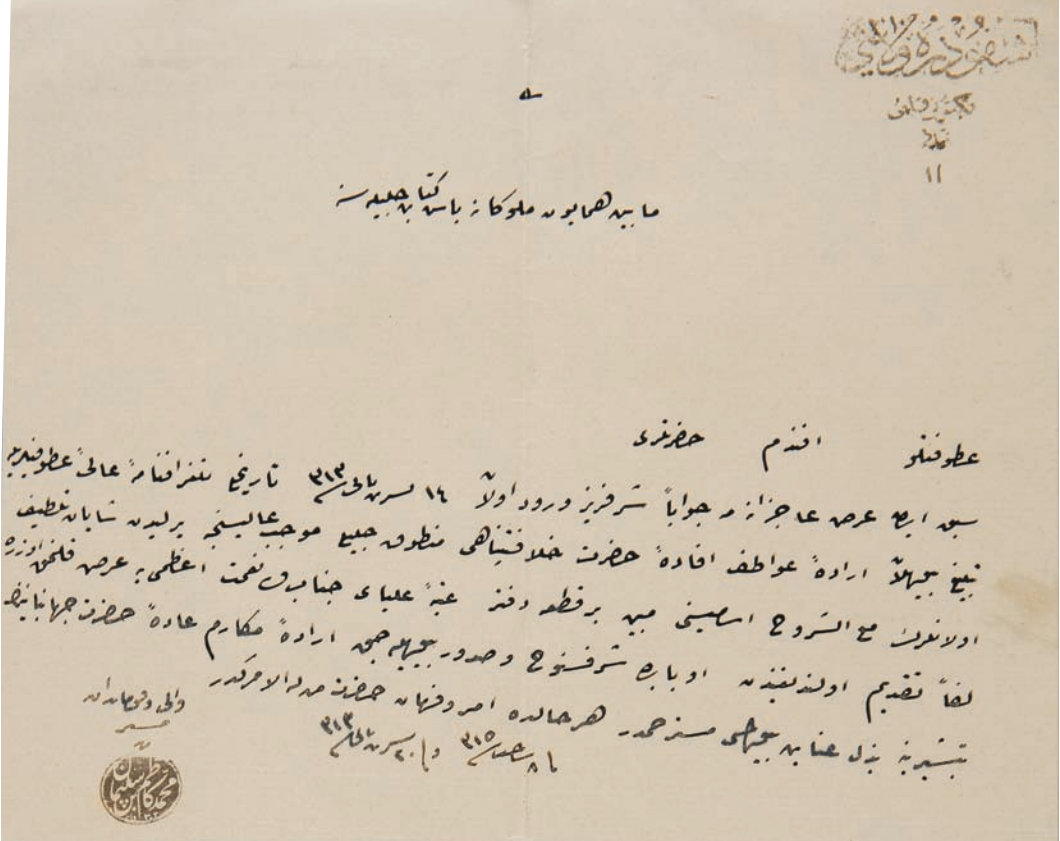 اشقودره ولايتى
مكتوبى قلمى
عدد
١١
مابين همايون ملوكانه باش كتابت جليله سنه
عطوفتلو افندم حضرتلرى
سبق ايدن عرض عاجزانه مه جواباً شرفريز ورود اولان ١٤ تشرين ثانى ٣١٣ تاريخلى تلغرافنامهٔ عالئ عطوفتپريله
تبليغ بيوريلان ارادهٔ عواطف افادهٔ حضرت خلافتپناهى منطوق جليل موجب عاليسنجه يرليدن شايان تلطيف
اولانلرك مع الشروح اساميسنى مبين بر قطعه دفتر عتبهٔ علياى جناب ولى نعمت اعظمى يه عرض قلنمق اوزره
لفاً تقديم اولنديغندن اوبابده شرفسنوح و صدور بيوريله جق ارادهٔ مكارم عادهٔ حضرت جهانبانينك
تبشيرينه بذل عنايت بيورلمسى مسترحمدر هر حالده امر و فرمان حضرت من له الامركدر
فى ٨ ٣١٥ و فى ٢٠ تشرين ثانى ٣١٣
والى و قوماندان
مشير
محمد كاظم بن سليمان